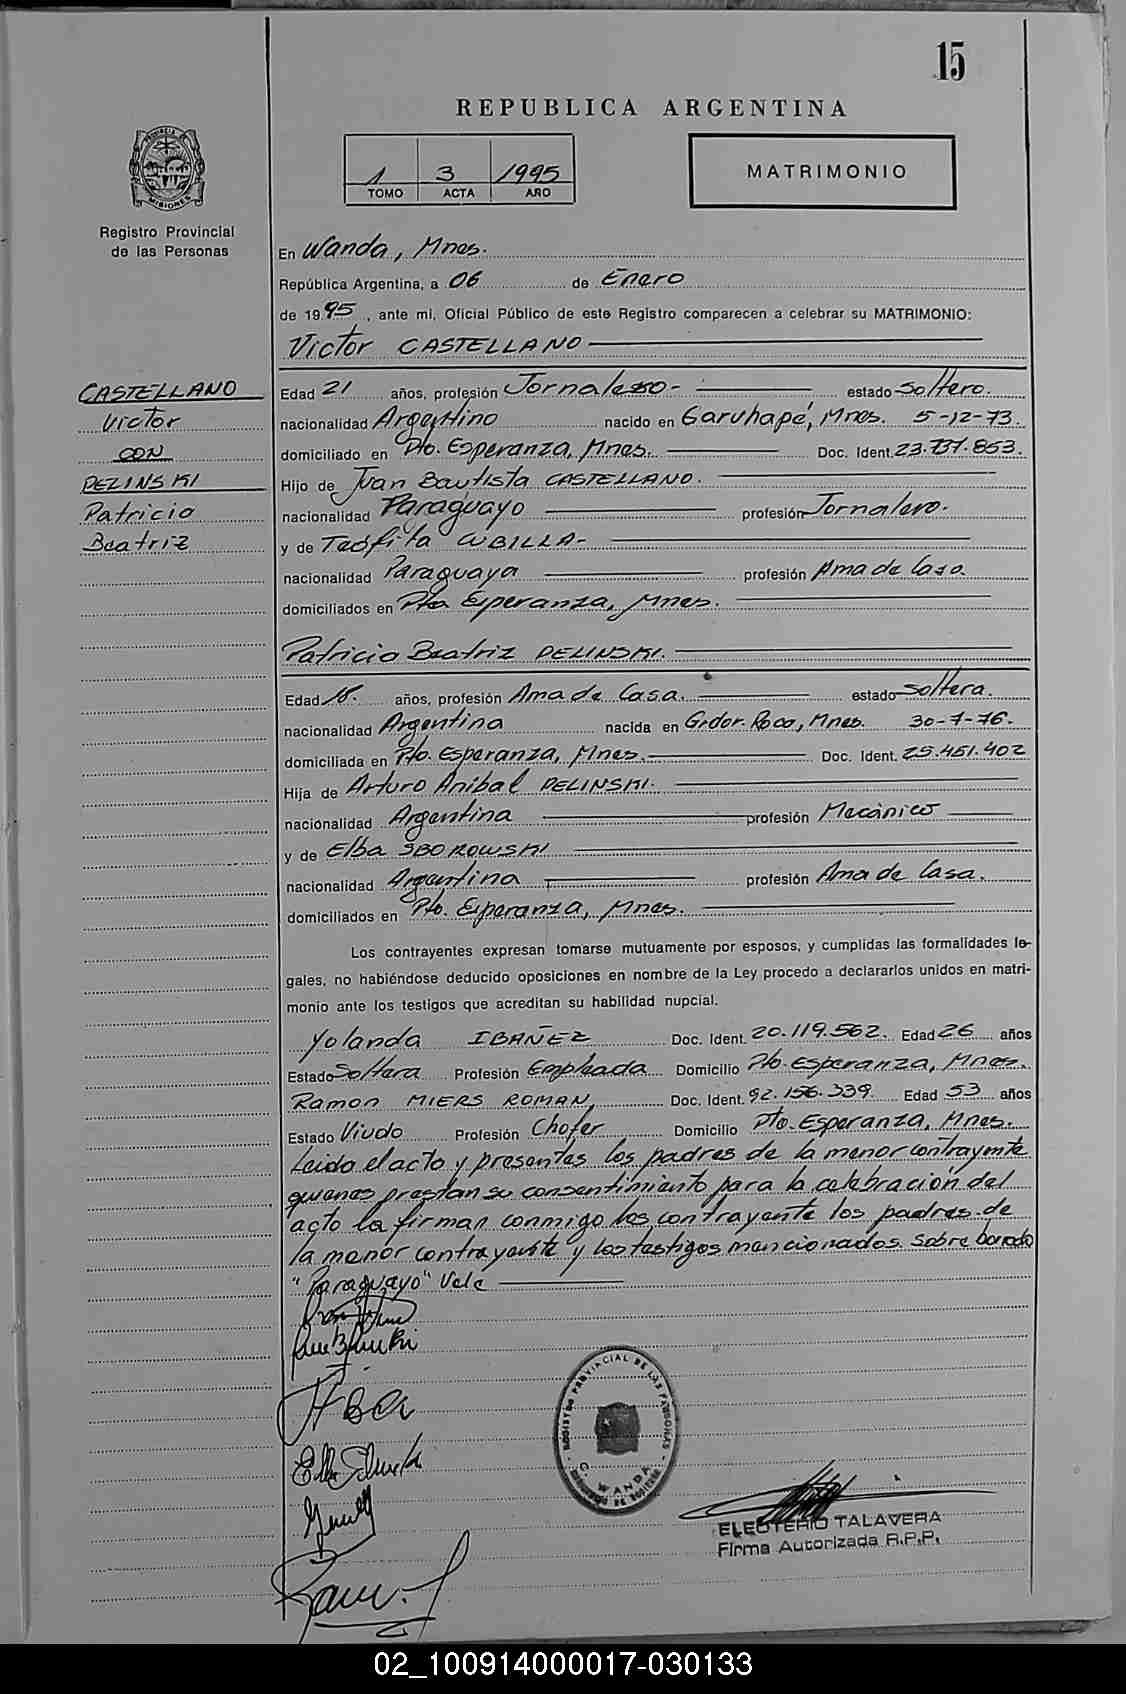 15
REPUBLICA ARGENTINA
1 3 1995
TOMO ACTA AÑO
MATRIMONIO
PROVINCIA DE MISIONES
Registro Provincial
de las Personas
En Wanda, Mnes.
República Argentina, a 06 de Enero
de 1995, ante mi, Oficial Público de este Registro comparecen a celebrar su MATRIMONIO:
Victor CASTELLANO
CASTELLANO
Victor
CON
PELINSKI
Patricia
Beatriz
Edad 21 años, profesión Jornalero- estado Soltero.
nacionalidad Argentino nacido en Garuhapé, Mnes. 5-12-73.
domiciliado en Pto. Esperanza, Mnes. Doc. Ident. 23.737.853.
Hijo de Juan Bautista CASTELLANO.
nacionalidad Paraguayo profesión Jornalero.
y de Teófila CUBILLA-
nacionalidad Paraguaya profesión Ama de Casa.
domiciliados en Pto Esperanza, Mnes.
Patricia Beatriz PELINSKI.
Edad 18. años, profesión Ama de Casa. estado Soltera.
nacionalidad Argentina nacida en Grdor. Roca, Mnes. 30-7-76.
domiciliada en Pto. Esperanza, Mnes. Doc. Ident. 25.451.402
Hija de Arturo Anibal PELINSKI.
nacionalidad Argentina profesión Mecánico
y de Elba SBOROWSKI
nacionalidad Argentina profesión Ama de Casa.
domiciliados en Pto. Esperanza, Mnes.
Los contrayentes expresan tomarse mutuamente por esposos, y cumplidas las formalidades le-
gales, no habiéndose deducido oposiciones en nombre de la Ley procedo a declararlos unidos en matri-
monio ante los testigos que acreditan su habilidad nupcial.
Yolanda IBAÑEZ Doc. Ident. 20.119.562. Edad 26 años
Estado Soltera Profesión Empleada Domicilio Pto. Esperanza, Mnes.
Ramon MIERS ROMAN, Doc. Ident. 92.156.339. Edad 53 años
Estado Viudo Profesión Chofer Domicilio Pto. Esperanza, Mnes.
Leido el acto y presentes los padres de la menor contrayente
quienes prestan su consentimiento para la celebración del
acto la firman conmigo los contrayente los padres de
la menor contrayente y los testigos mencionados. Sobre borrado
"Paraguayo" Vale
REGISTRO PROVINCIAL DE LAS PERSONAS
WANDA
ELEOTERIO TALAVERA
Firma Autorizada R.P.P.
02_100914000017-030133